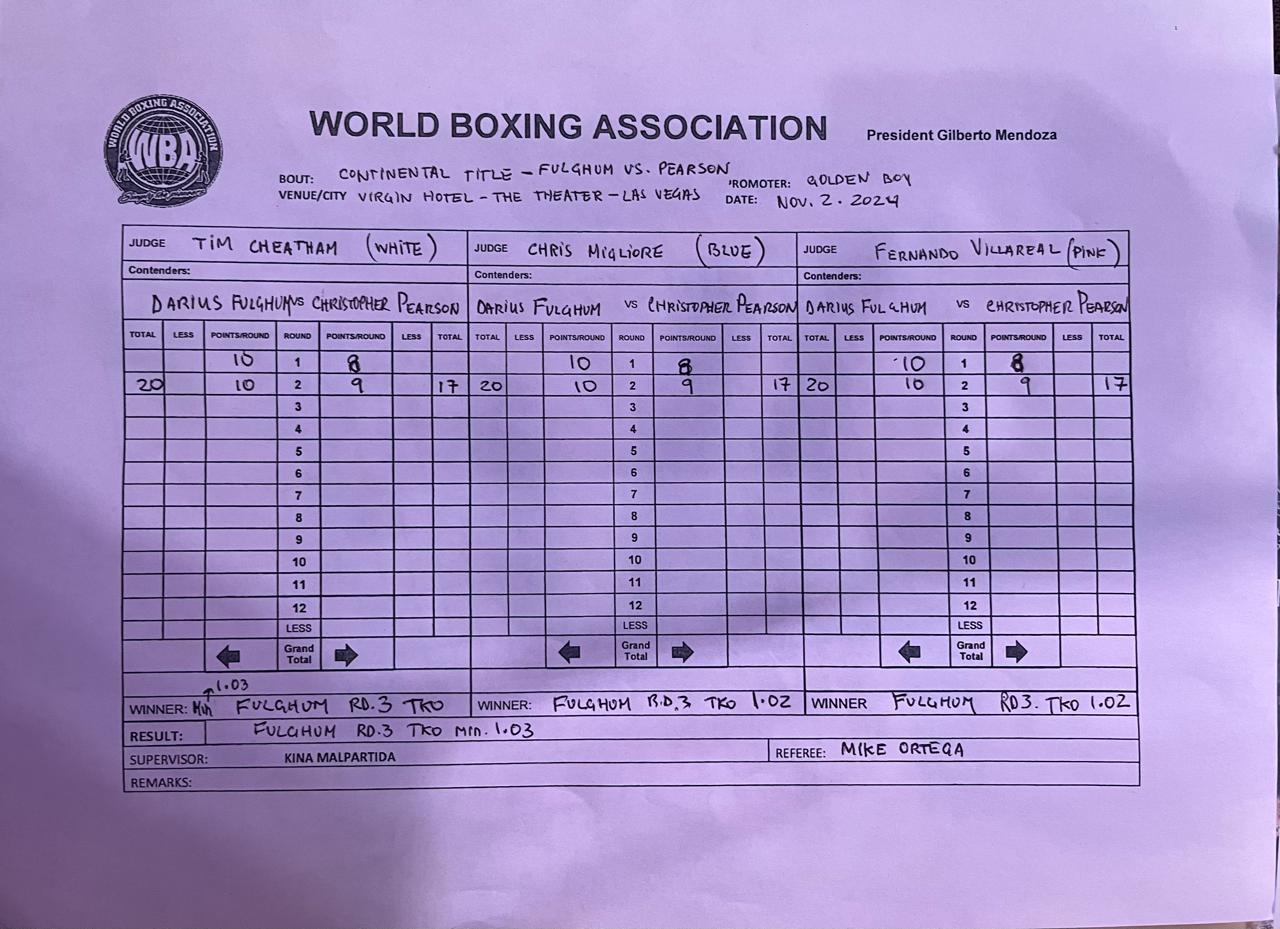 WORLD BOXING ASSOCIATION
WBA
WORLD BOXING ASSOCIATION President Gilberto Mendoza
BOUT: CONTINENTAL TITLE - FULGHUM VS. PEARSON 'ROMOTER: GOLDEN BOY
VENUE/CITY VIRGIN HOTEL - THE THEATER - LAS VEGAS DATE: NOV. 2. 2024
JUDGE TIM CHEATHAM (WHITE) JUDGE CHRIS MIGLIORE (BLUE) JUDGE FERNANDO VILLAREAL (PINK)
Contenders: Contenders: Contenders:
DARIUS FULGHUM VS CHRISTOPHER PEARSON DARIUS FULGHUM VS CHRISTOPHER PEARSON DARIUS FULGHUM VS CHRISTOPHER PEARSON
TOTAL LESS POINTS/ROUND ROUND POINTS/ROUND LESS TOTAL TOTAL LESS POINTS/ROUND ROUND POINTS/ROUND LESS TOTAL TOTAL LESS POINTS/ROUND ROUND POINTS/ROUND LESS TOTAL
10 1 8 10 1 8 10 1 8
20 10 2 9 17 20 10 2 9 17 20 10 2 9 17
3 3 3
4 4 4
5 5 5
6 6 6
7 7 7
8 8 8
9 9 9
10 10 10
11 11 11
12 12 12
LESS LESS LESS
Grand Total Grand Total Grand Total
1.03
WINNER: Min FULGHUM RD.3 TKO WINNER: FULGHUM RD.3 TKO 1.02 WINNER FULGHUM RD3. TKO 1.02
RESULT: FULGHUM RD.3 TKO MIN. 1.03
SUPERVISOR: KINA MALPARTIDA REFEREE: MIKE ORTEGA
REMARKS: